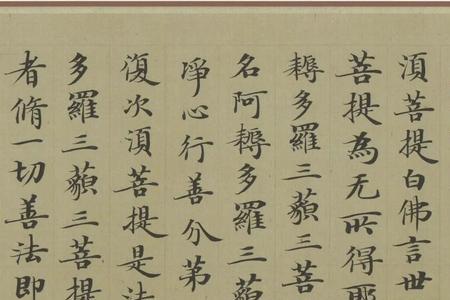 湏菩提白佛言世
菩提為无所得耶
耨多羅三藐三菩
名阿耨多羅三藐
淨心行善分第
復次湏菩提是法
多羅三藐三菩提
者脩一切善法即